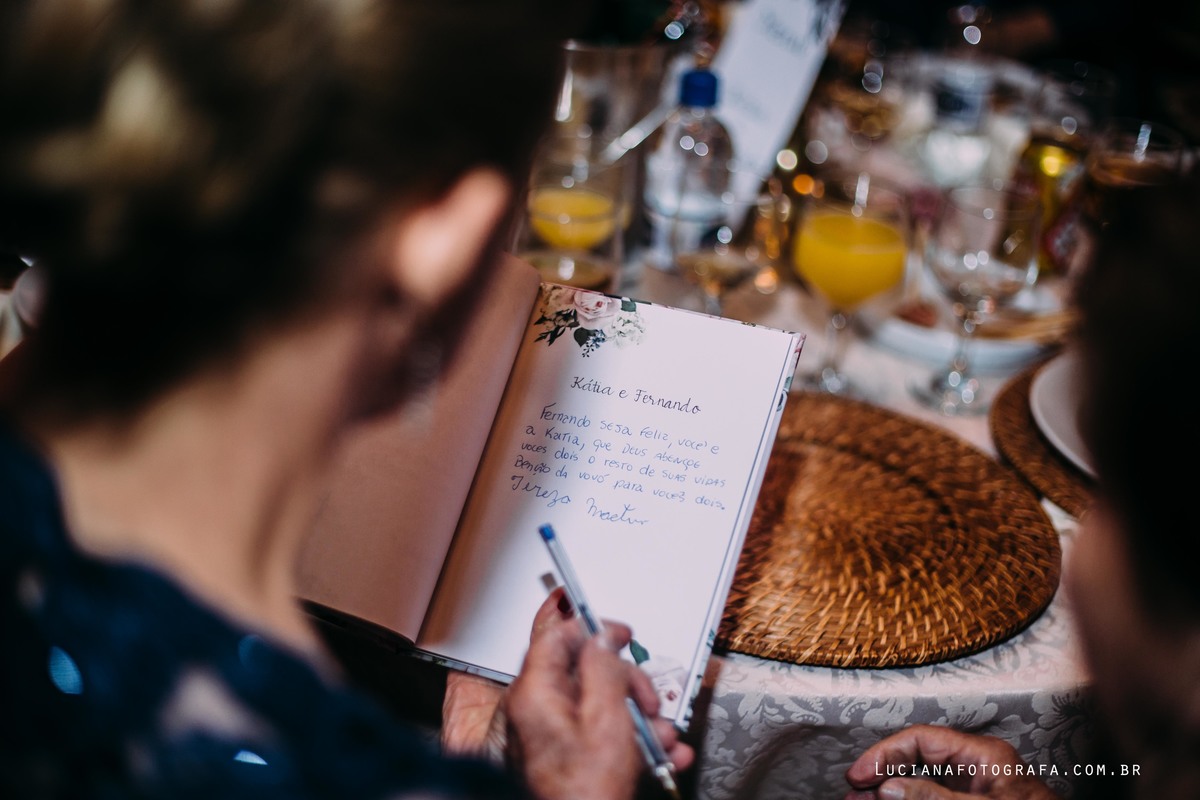 Kátia e Fernando
Fernando seja feliz, voce e
a Katia, que Deus abençoe
voces dois o resto de suas vidas
Benção da vovó para voces dois.
Tereza
LUCIANAFOTOGRAFA.COM.BR